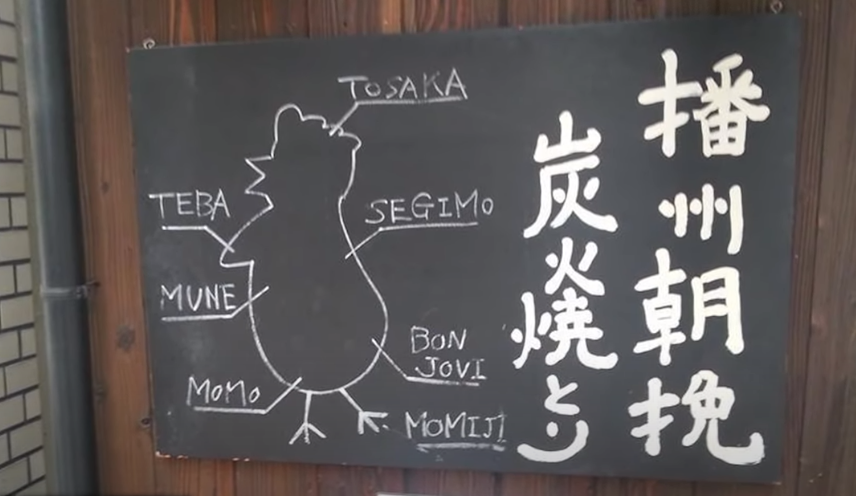 播州朝挽
炭火焼とり
TOSAKA
TEBA
SEGIMO
MUNE
BON
JOVI
MOMO
MOMIJI